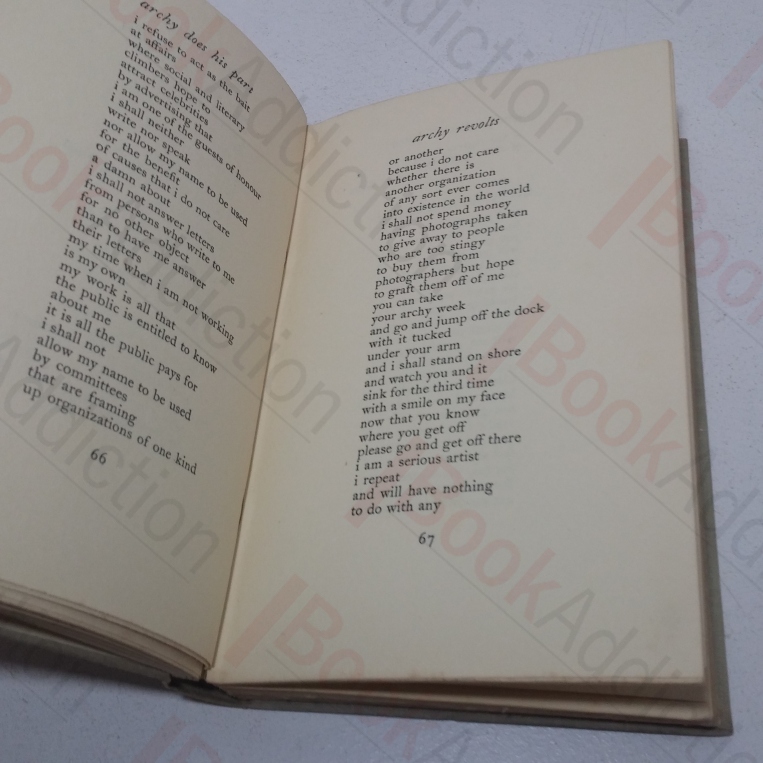 archy does his part
i refuse to act as the bait
at affairs
where social and literary
climbers hope to
attract celebrities
by advertising that
i am one of the guests of honour
i shall neither
write nor speak
nor allow my name to be used
for the benefit
of causes that i do not care
a damn about
i shall not answer letters
from persons who write to me
for no other object
than to have me answer
their letters
my time when i am not working
is my own
my work is all that
the public is entitled to know
about me
it is all the public pays for
i shall not
allow my name to be used
by committees
that are framing
up organizations of one kind
66
archy revolts
or another
because i do not care
whether there is
another organization
of any sort ever comes
into existence in the world
i shall not spend money
having photographs taken
to give away to people
who are too stingy
to buy them from
photographers but hope
to graft them off of me
you can take
your archy week
and go and jump off the dock
with it tucked
under your arm
and i shall stand on shore
and watch you and it
sink for the third time
with a smile on my face
now that you know
where you get off
please go and get off there
i am a serious artist
i repeat
and will have nothing
to do with any
67
BookAddiction